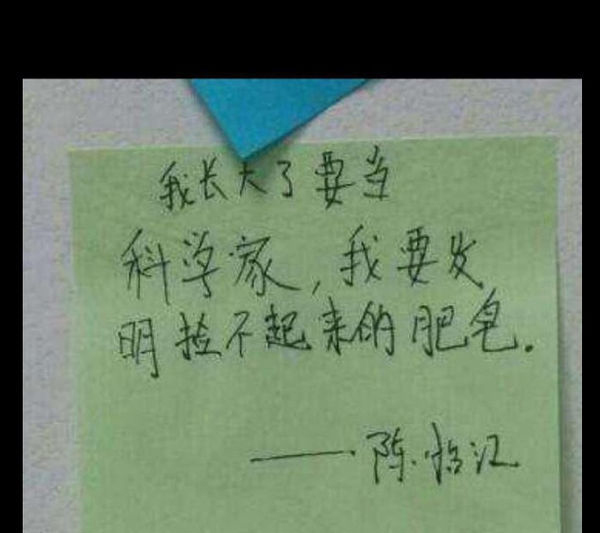 我长大了要当
科学家,我要发
明捡不起来的肥皂.
——陈临江